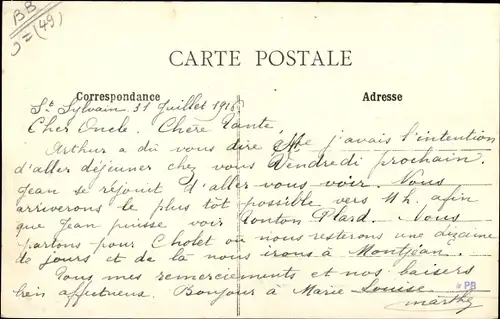 BB
J=(49)
CARTE POSTALE
Correspondance
Adresse
St Sylvain 31 Juillet 1918
Cher Oncle. Chère Tante,
Arthur a dû vous dire que j'avais l'intention
d'aller déjeuner chez vous Vendredi prochain.
Jean se réjouit d'aller vous voir. Nous
arriverons le plus tôt possible vers 11h. afin
que Jean puisse voir tonton Plard. Nous
partons pour Cholet où nous resterons une dizaine
de jours et de la nous irons à Montjean.
Tous mes remerciements et nos baisers
bien affectueux. Bonjour à Marie Louise
Marthe
PB